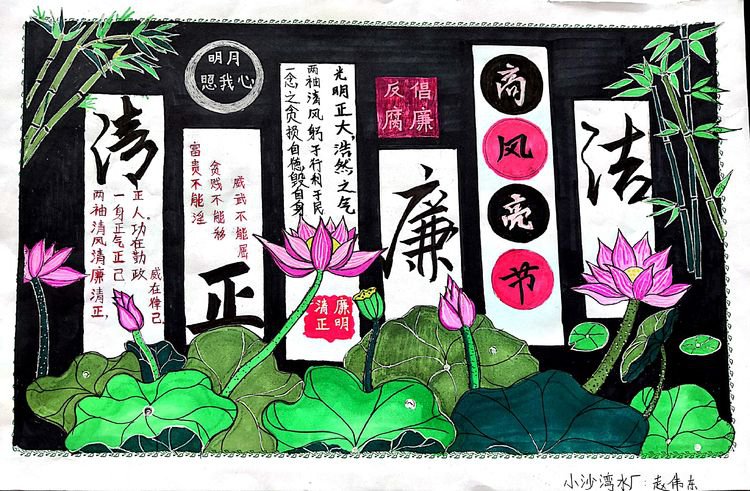 清
两袖清风清廉清正,
一身正气正己
正人。功在勤政
威在律己.
明月
照我心
富贵不能淫
贫贱不能移
威武不能屈
正
光明正大,浩然之气
两袖清风躬于行利于民
一念之贪损自德毁自身
廉明
清正
反腐
倡廉
廉
高风亮节
洁
小沙湾水厂:赵伟东